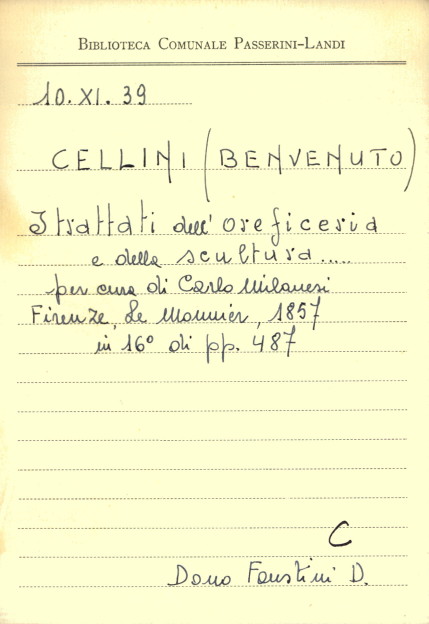 BIBLIOTECA COMUNALE PASSERINI-LANDI
10.XI.39
CELLINI (BENVENUTO)
I trattati dell'oreficeria
e della scultura.....
per cura di Carlo Milanesi
Firenze, Le Monnier, 1857
in 16° di pp. 487
C
Dono Faustini D.